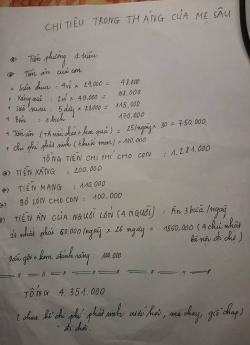 CHI TIÊU TRONG THÁNG CỦA MẸ SÂU
* Tiền phòng 1 triệu
* Tiền ăn của con
+ Sữa chua: 4 vỉ x 29.000 = 48.000
+ Váng sữa: 2 vỉ x 49.000 = 98.000
+ 5 dây x 23.000 = 115.000
+ Bỉm: 1 bịch 170.000
+ Tiền ăn (+ hoa quả) = 25/ngày x 30 = 750.000
+ chi phí phát sinh (thuốc men) = 100.000
TỔNG TIỀN CHI PHÍ CHO CON: 1.281.000
* TIỀN XĂNG: 200.000
* TIỀN MẠNG: 110.000
* BỎ LỢN CHO CON: 100.000
* TIỀN ĂN CỦA NGƯỜI LỚN (4 NGƯỜI): Ăn 3 bữa/ngày
60.000/ngày x 26 ngày = 1560.000 (4 chủ nhật
Dầu gội + kem đánh răng 100.000
TỔNG 4.351.000
(chưa kể chi phí phát sinh cưới hỏi, ma chay, giỗ chạp)
đi chơi.